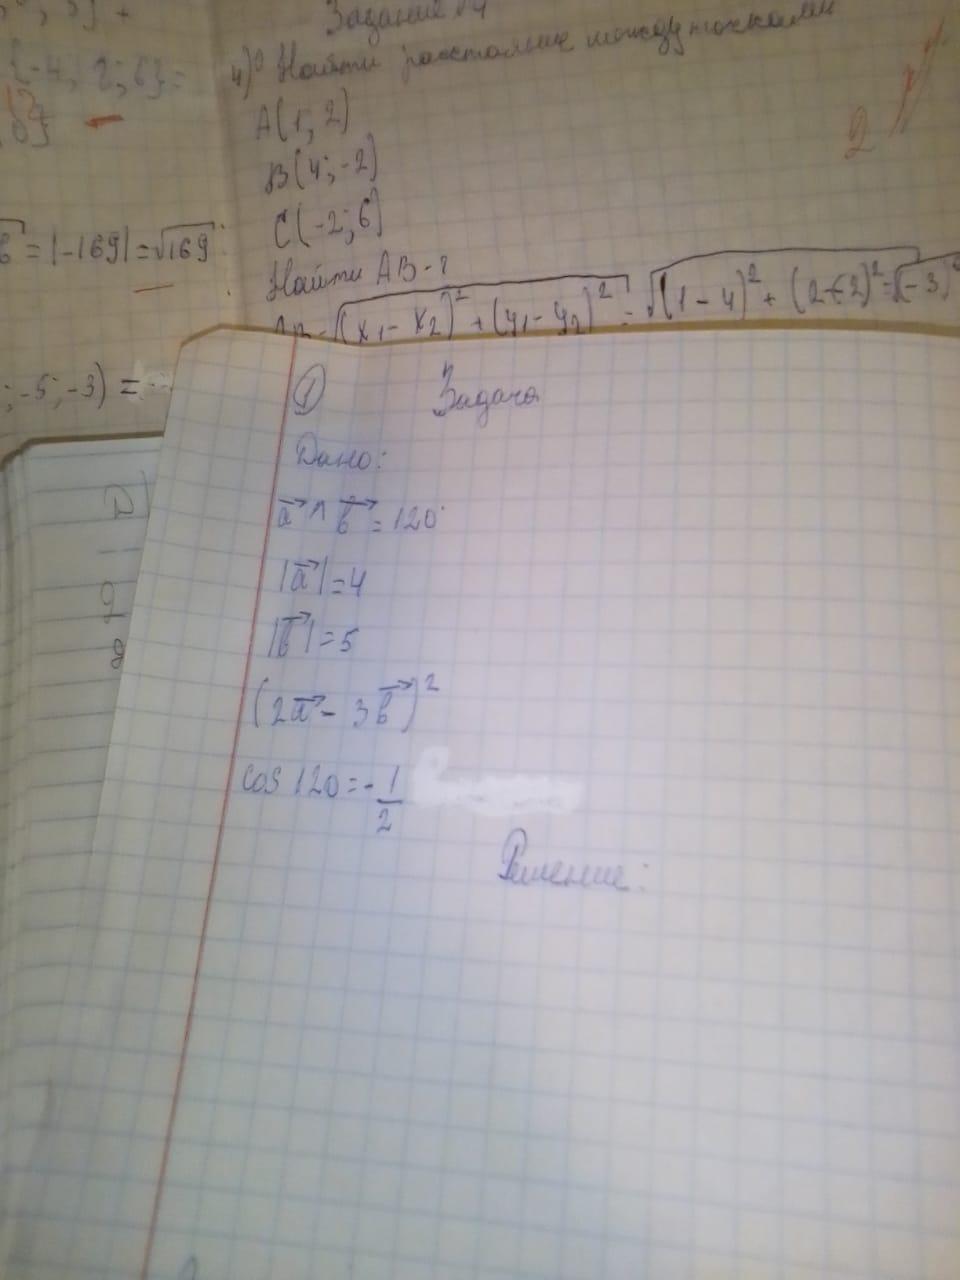 Задание №4
4) Найти расстояние между точками
A(1; 2)
B(4; -2)
C(-2; 6)
Найти AB - ?
√(x₁ - x₂)² + (y₁ - y₂)² = √(1 - 4)² + (2 - (-2)² = √(-3)²
{-4; 2; 6} =
= |-169| = √169
; -5; -3) =
2
① Задача
Дано:
a⃗ ^ b⃗ = 120°
|a⃗| = 4
|b⃗| = 5
(2a⃗ - 3b⃗)²
cos 120 = -1/2
Решение: